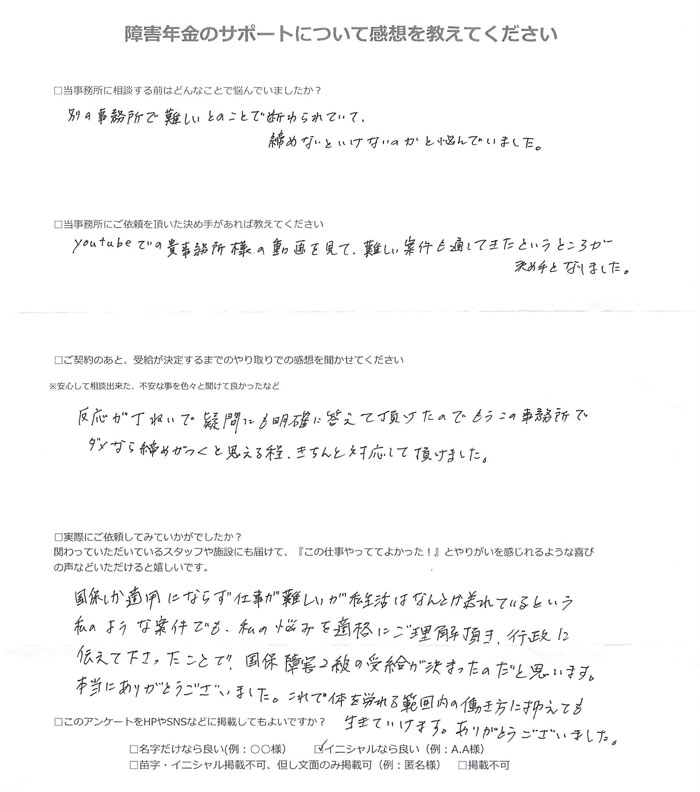 障害年金のサポートについて感想を教えてください
□当事務所に相談する前はどんなことで悩んでいましたか？
別の事務所で難しいとのことで断わられていて、
締めないといけないのかと悩んでいました。
□当事務所にご依頼を頂いた決め手があれば教えてください
youtubeでの貴事務所様の動画を見て、難しい案件も通してきたというところが
決め手となりました。
□ご契約のあと、受給が決定するまでのやり取りでの感想を聞かせてください
※安心して相談出来た、不安な事を色々と聞けて良かったなど
反応が丁ねいで疑問にも明確に答えて頂けたのでもうこの事務所で
ダメなら締めがつくと思える程、きちんと対応して頂けました。
□実際にご依頼してみていかがでしたか？
関わっていただいているスタッフや施設にも届けて、『この仕事やっててよかった！』とやりがいを感じれるような喜び
の声などいただけると嬉しいです。
国保しか適用にならず仕事が難しいが私生活はなんとか送れているという
私のような案件でも、私の悩みを適格にご理解頂き、行政に
伝えて下さったことで、国保障害2級の受給が決まったのだと思います。
本当にありがとうございました。これで体を労れる範囲内の働き方に抑えても
生きていけます。ありがとうございました。
□このアンケートをHPやSNSなどに掲載してもよいですか？
□名字だけなら良い(例：○○様) ☑イニシャルなら良い（例：A.A様）
□苗字・イニシャル掲載不可、但し文面のみ掲載可（例：匿名様） □掲載不可